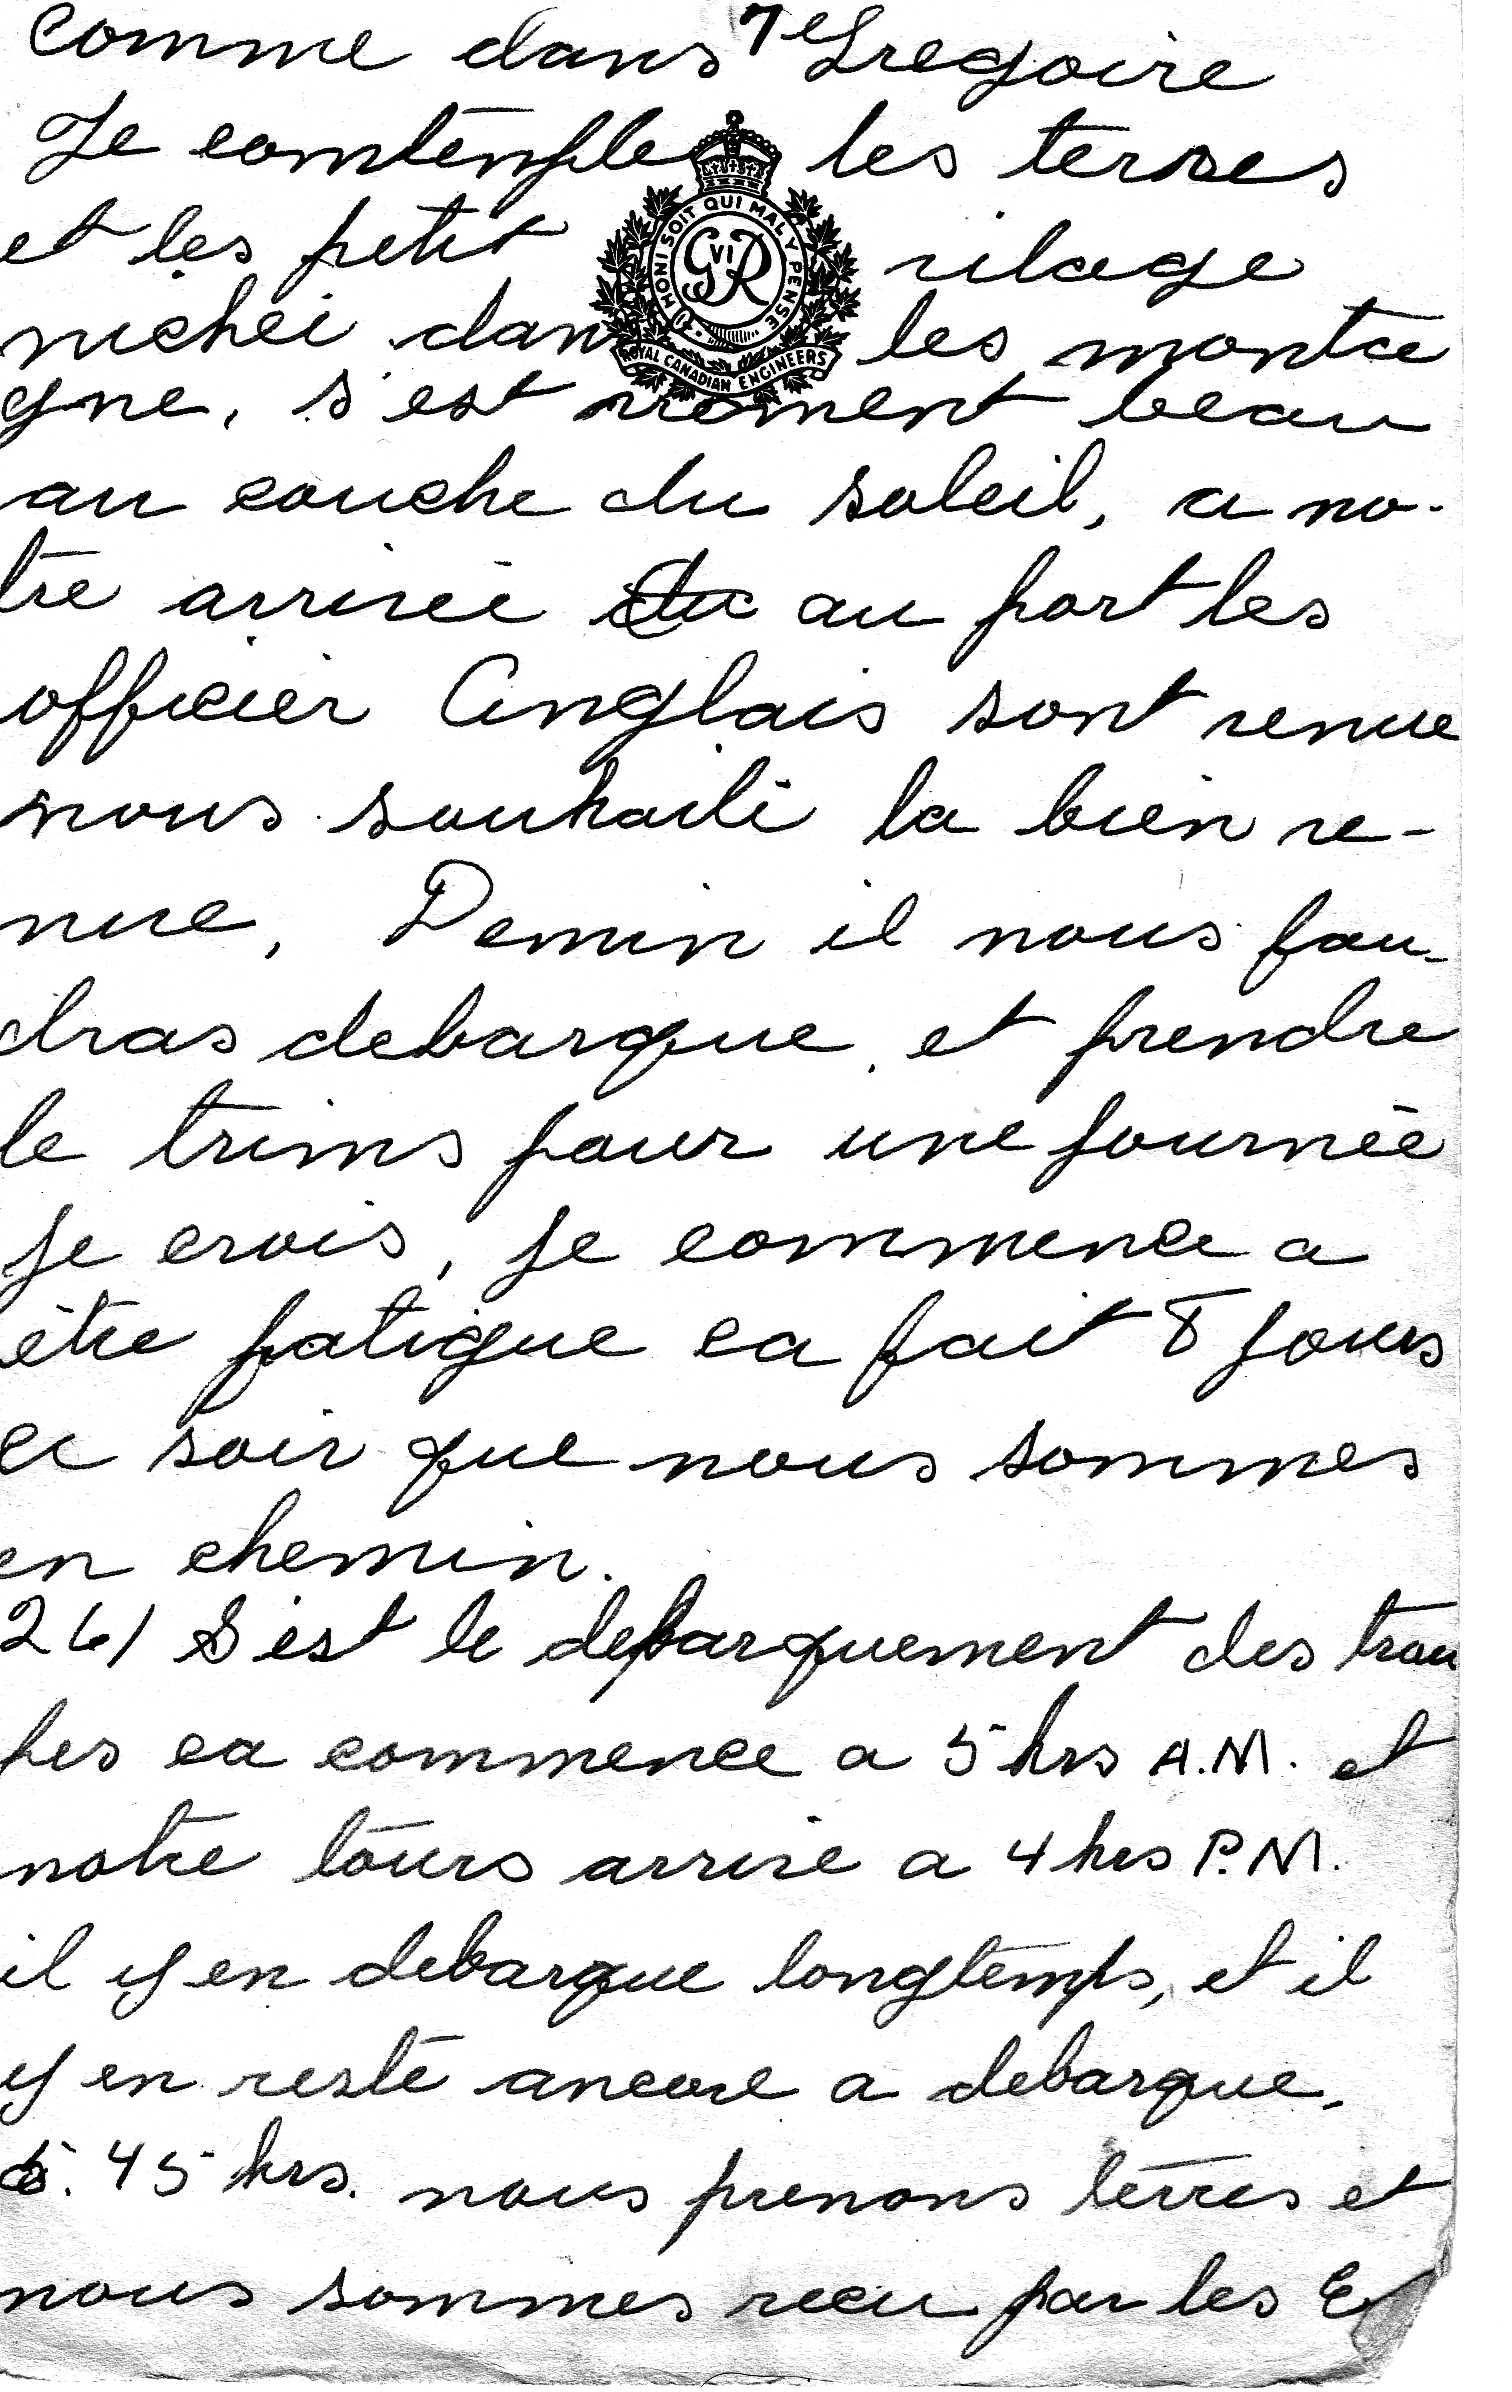 comme dans Gregoire
7e
Je comtemple les terres
et les petit vilage
HONI SOIT QUI MAL Y PENSE
GVIR
ROYAL CANADIAN ENGINEERS
nichéi dans les monta
gne, s'est vroment beau
au couche du soleil, a no-
tre arrivée au port les
officier Anglais sont venue
nous souhaite la bien ve-
nue, Demin il nous fau-
dras debarque, et prendre
le trins pour une journée
je crois, je commence a
être fatigue ca fait 8 jours
ce soir que nous sommes
en chemin.
26/ S'est le debarquement des trou
pes ca commence a 5 hrs A.M. et
notre tours arrive a 4 hrs P.M.
il y en debarque longtemps, et il
y en reste ancore a debarque.
45 hrs. nous prenons terres et
nous sommes recu par les E